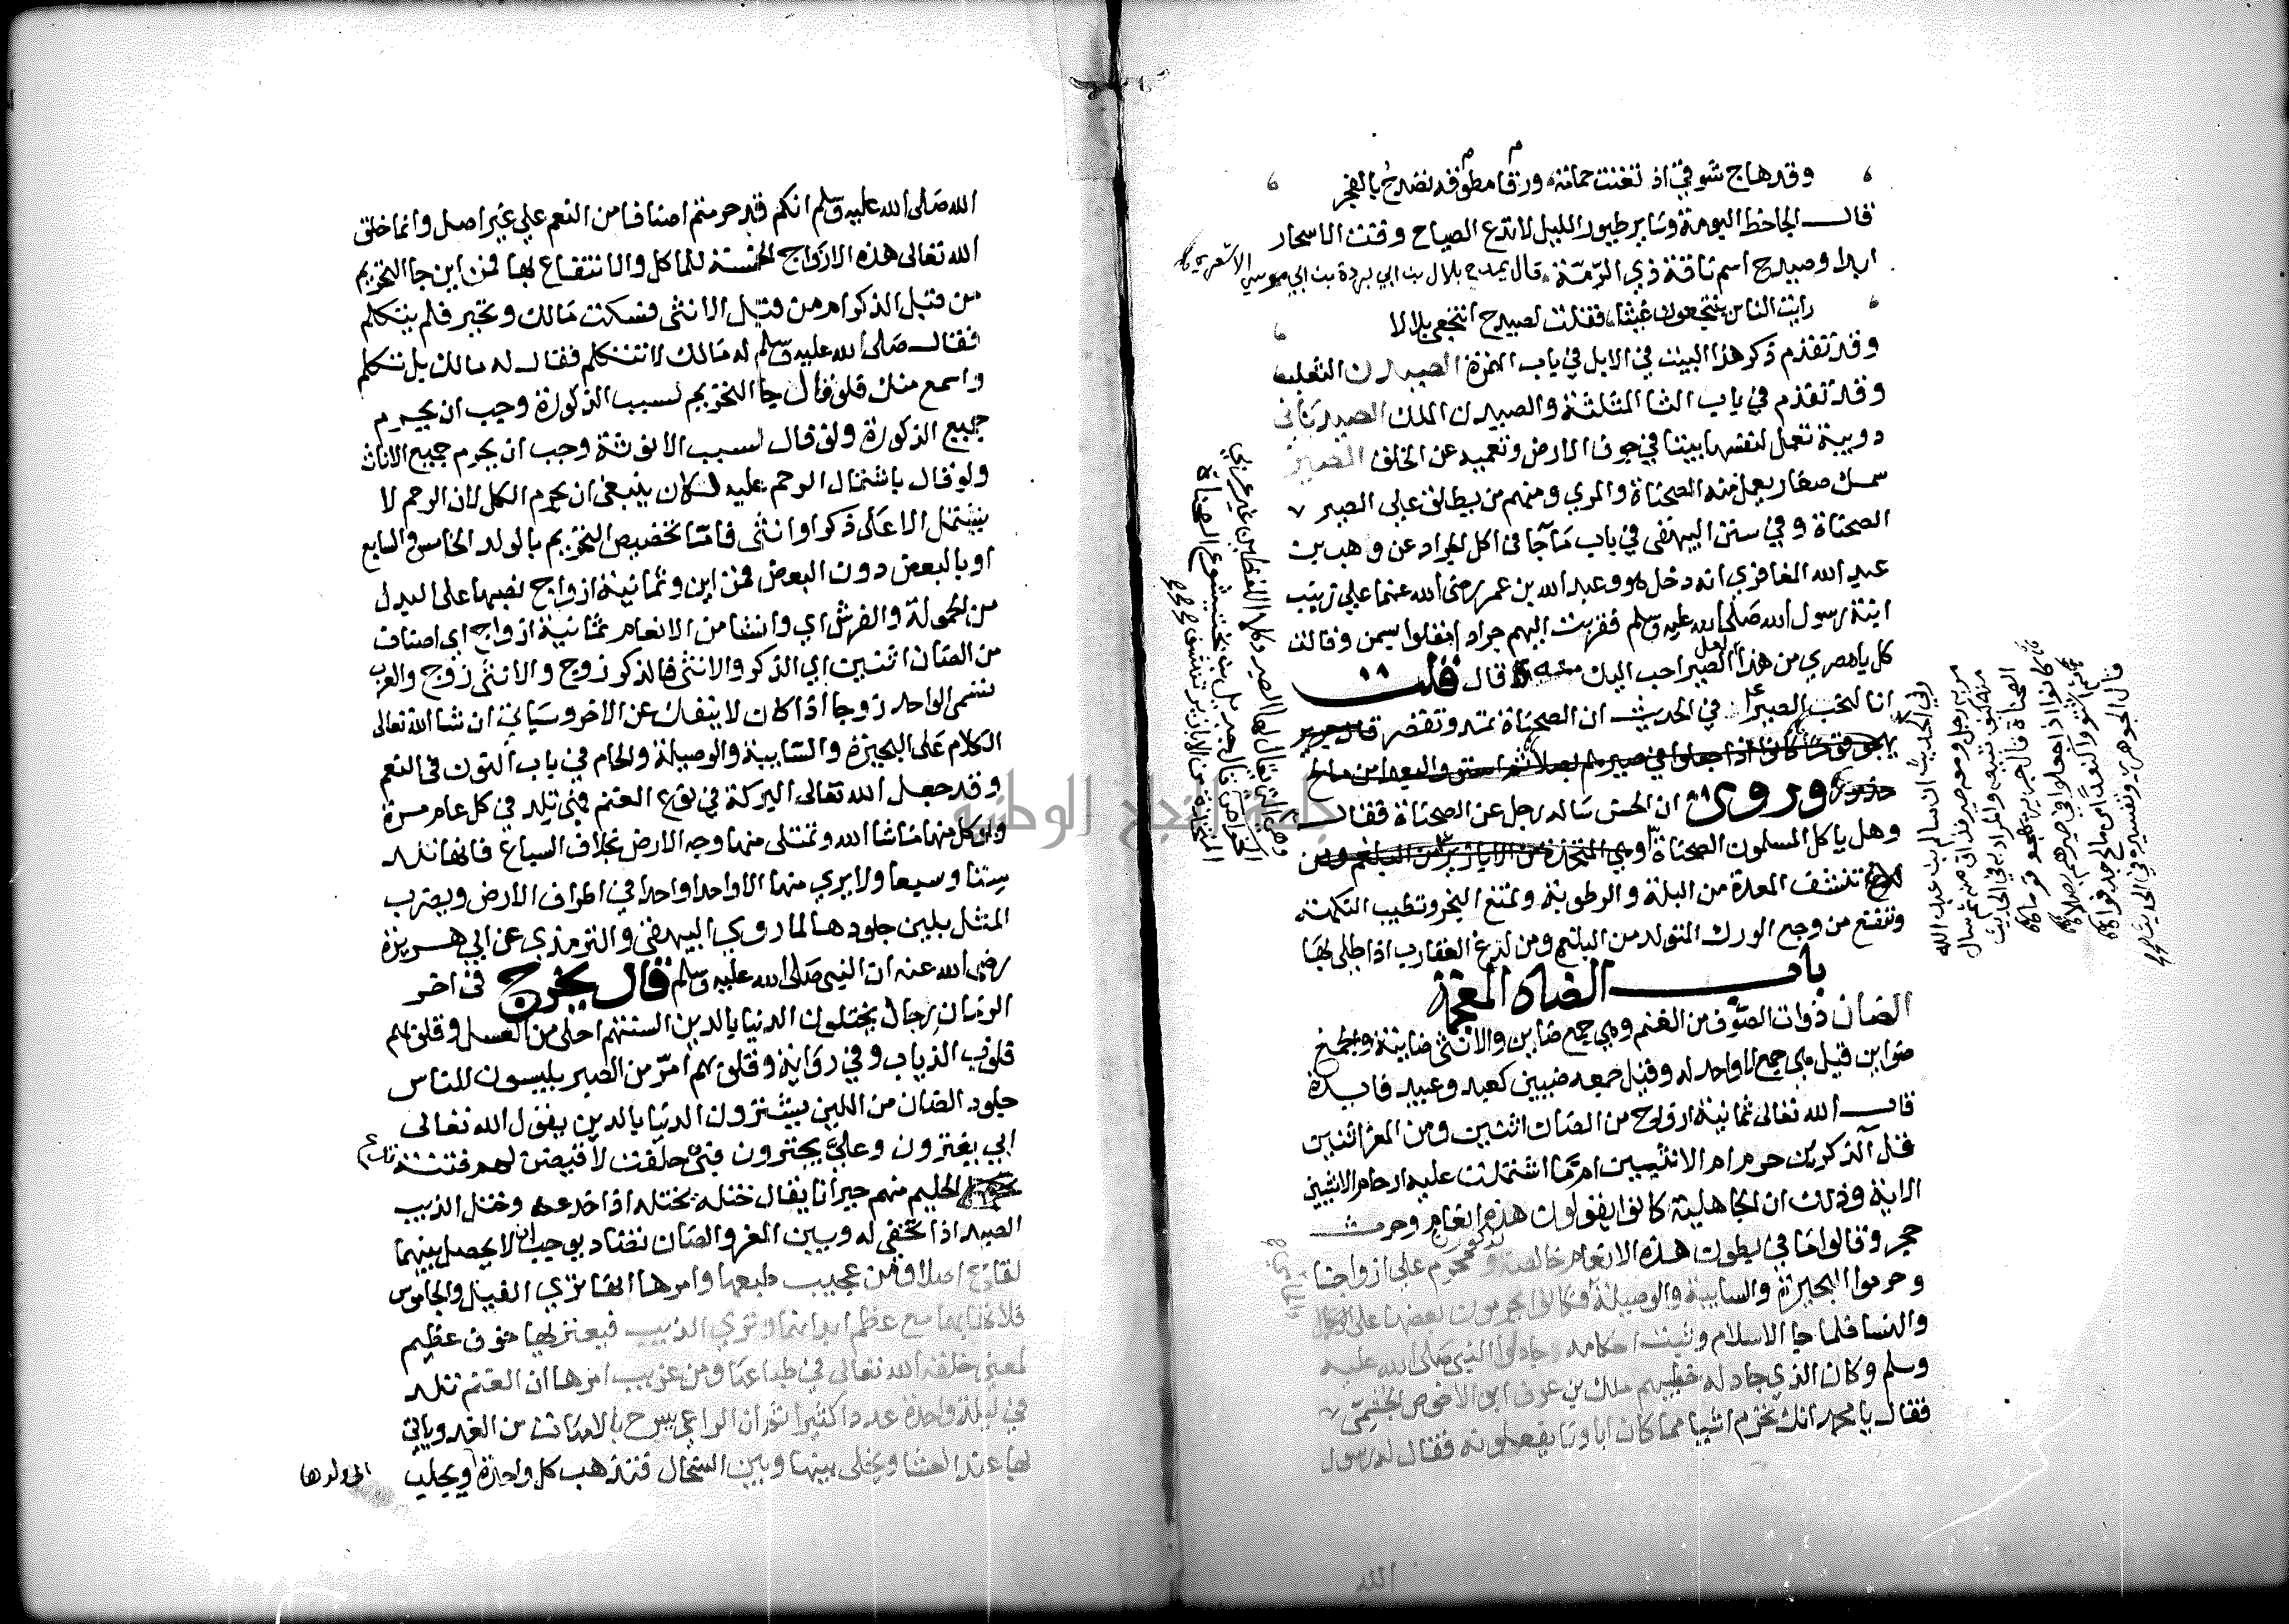 وقد هاج شوقي اذ تغنت حمامة ورقا مطوقة تصدح بالفجر
قال الجاحظ البومة وساير طيور الليل لا تدع الصياح وقت الاسحار
ابدا وصيدح اسم ناقة ذي الرمة قال يمدح بلال بن ابي بردة بن ابي موسي الاشعري
رايت الناس ينتجعون غيثا فقلت لصيدح انتجعي بلالا
وقد تقدم ذكر هذا البيت في الابل في باب الهمزة الصيدن الثعلب
وقد تقدم في باب الثا المثلثة والصيدن الملك الصيدناني
دويبة تعمل لنفسها بيتا في جوف الارض وتعميه عن الخلق الصير
سمك صغار يعمل منه الصحناة والمري ومنهم من يطلق علي الصير
الصحناة وفي سنن البيهقي في باب ما جا في اكل الجراد عن وهب بن
عبد الله المغافري انه دخل هو وعبد الله بن عمر رضي الله عنهما علي زينب
ابنة رسول الله صلى الله عليه وسلم فقربت اليهم جراد امقلوا بسمن وقالت
كل يا مصري من هذا لعل الصير احب اليك منه قال قلت
انا لنحب الصير في الحديث ان الصحناة تمتد وتقصر قال جرير
يهجو قوما كانوا اذا جعلوا في صيرهم بصلا ثم اشتووا كنعدا من مالح
جدفوا وروي ان الحسن ساله رجل عن الصحناة فقال
وهل ياكل المسلمون الصحناة وهي المتخذة من الابازير من البلغم ومن
تنشف المعدة من البلة والرطوبة وتمنع البخر وتطيب النكهة
وتنفع من وجع الورك المتولد من البلغم ومن لدغ العقارب اذا طلي بها
باب الضاد المعجمة
الضان ذوات الصوف من الغنم وهي جمع ضاين والانثى ضاينة والجمع
ضواين قيل هي جمع لا واحد له وقيل جمعه ضيين كعبد وعبيد فايدة
قال الله تعالى ثمانية ازواج من الضان اثنين ومن المعز اثنين
قل آلذكرين حرم ام الانثيين اما اشتملت عليه ارحام الانثيين
الاية وذلك ان الجاهلية كانوا يقولون هذه انعام وحرث
حجر وقالوا ما في بطون هذه الانعام خالصة لذكورنا ومحرم على ازواجنا
وحرموا البحيرة والسايبة والوصيلة فكانوا يحرمون بعضها على الرجال
والنسا فلما جا الاسلام وثبت احكامه جادلوا النبي صلى الله عليه
وسلم وكان الذي جادله خطيبهم ملك بن عوف ابو الاحوص الجشمي
فقال يا محمد انك تحرم اشيا مما كان اباونا يفعلونه فقال له رسول
الله
وفي الحديث ان سالم بن عبد الله
مر به رجل ومعه صير فذاق منه ثم سال
منه كيف تبيعه والمراد به في الحديث
الصحناة قال جرير يهجو قوما
كانوا اذا جعلوا في صيرهم بصلا
ثم اشتووا كنعدا من مالح جدفوا
قال الجوهري وتفسيره في الحديث
وهي التي يقال لها الصير وكلا اللفظين غير عربي
الخواص قال جبريل بن بختيشوع الصحناة
المتخذة من الابازير تنشف
الله صلى الله عليه وسلم انكم قد حرمتم اصنافا من النعم علي غير اصل وانما خلق
الله تعالى هذه الازواج الخمسة للماكل والانتفاع بها فمن اين جا التحريم
من قبل الذكر ام من قبل الانثى فسكت مالك وتحير فلم يتكلم
فقال صلى الله عليه وسلم له مالك لا تتكلم فقال له مالك بل تكلم
واسمع منك فلو قال جا التحريم لسبب الذكورة وجب ان يحرم
جميع الذكورة ولو قال لسبب الانوثة وجب ان يحرم جميع الاناث
ولو قال باشتمال الرحم عليه لكان ينبغى ان يحرم الكل لان الرحم لا
يشتمل الا على ذكر او انثى فاما تخصيص التحريم بالولد الخامس والسابع
او بالبعض دون البعض فمن اين وثمانية ازواج نصبها على البدل
من الحمولة والفرش اي وانشا من الانعام ثمانية ازواج اي اصناف
من الضان اثنين اي الذكر والانثى فالذكر زوج والانثى زوج والعرب
تسمى الواحد زوجا اذا كان لا ينفك عن الاخر وسياتي ان شا الله تعالى
الكلام على البحيرة والسايبة والوصيلة والحام في باب النون في النعم
وقد جعل الله تعالى البركة في نوع الغنم فهى تلد في كل عام مرة
ويوكل منها ما شا الله وتمتلى منها وجه الارض بخلاف السباع فانها تلد
ستا وسبعا ولا يري منها الا واحدا واحدا في اطراف الارض ويضرب
المثل بلين جلودها لما روي البيهقي والترمذي عن ابي هريرة
رضي الله عنه ان النبي صلى الله عليه وسلم قال يخرج في اخر
الزمان رجال يختلون الدنيا بالدين السنتهم احلى من العسل وقلوبهم
قلوب الذياب وفي رواية وقلوبهم امر من الصبر يلبسون للناس
جلود الضان من اللين يشترون الدنيا بالدين يقول الله تعالى
ابي يغترون وعلي يجترون فبي حلفت لاقيضن لهم فتنة تدع
الحليم منهم حيرانا يقال ختله يختله اذا خدعه وختل الذيب
الصيد اذا تخفى له وبين المعز والضان تضاد يوجب ان لا يحصل بينهما
لقاح اصلا ومن عجيب طبعها وامرها انها تري الفيل والجاموس
فلا تهابهما مع عظم ابدانهما وتري الذيب فيعتريها خوف عظيم
لمعنى خلقه الله تعالى في طباعها ومن غريب امرها ان الغنم تلد
في ليلة واحدة عددا كثيرا ثم ان الراعي يسرح بالامهات من الغد وياتي
بها عند العشا ويخلى بينها وبين السخال فتذهب كل واحدة الى ولدها ويجلب
جامعة النجاح الوطنية